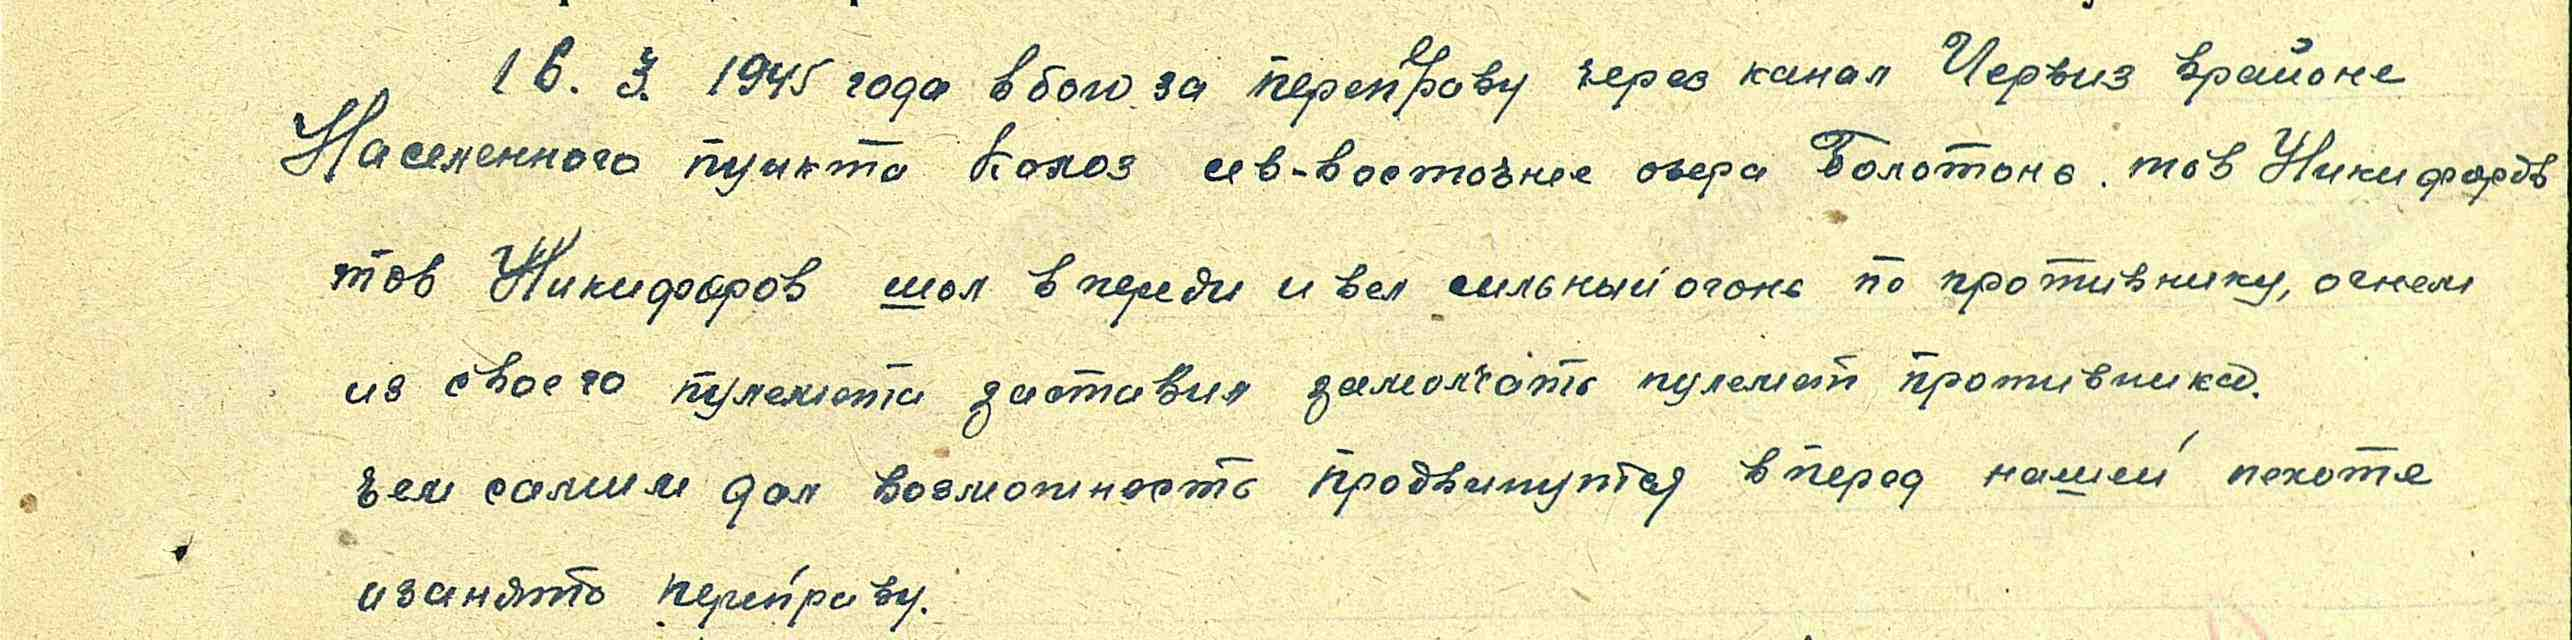 16. 3. 1945 года в бою за переправу через канал Червиз в районе
Населенного пункта Колоз сев-восточнее озера Болотона. тов Никифоров
тов Никифоров шол в переди и вел сильный огонь по противнику, огнем
из своего пулемета заставил замолчать пулемет противника.
чем самим дал возможность продвинутся в перед нашей пехоте
и занять переправу.